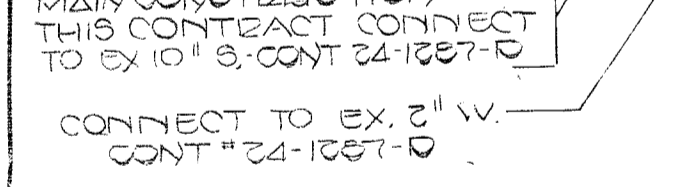 THIS CONTRACT CONNECT
TO EX 10" S,-CONT 24-1287-D
CONNECT TO EX. 2" W.
CONT # 24-1287-D